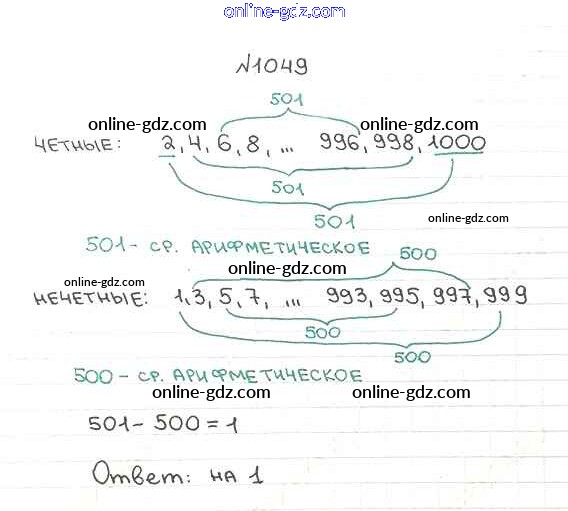 online-gdz.com
№1049
501
online-gdz.com online-gdz.com
ЧЕТНЫЕ: 2, 4, 6, 8, ... 996, 998, 1000
501
501
online-gdz.com
501 - СР. АРИФМЕТИЧЕСКОЕ 500
online-gdz.com
online-gdz.com
НЕЧЕТНЫЕ: 1, 3, 5, 7, ... 993, 995, 997, 999
500
500
500 - СР. АРИФМЕТИЧЕСКОЕ
online-gdz.com online-gdz.com
501 - 500 = 1
Ответ: на 1